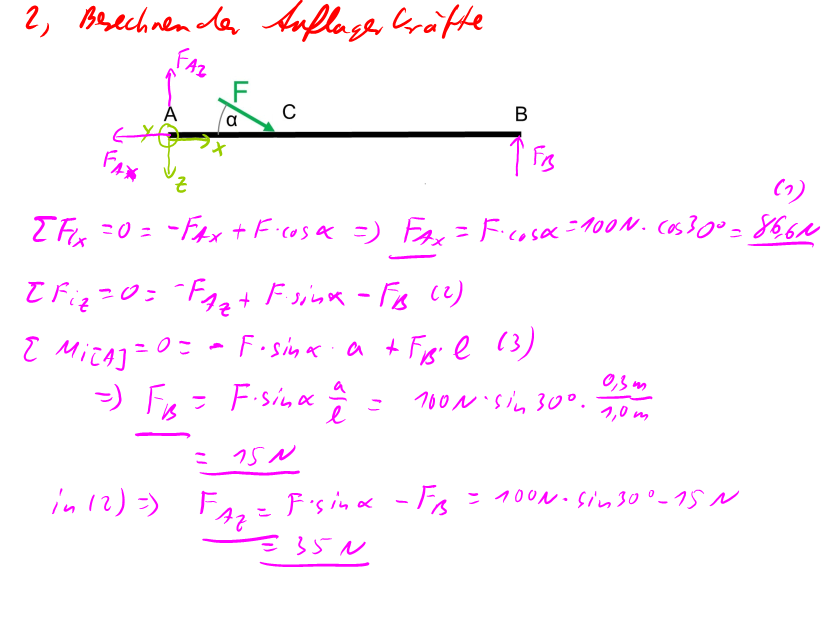 2, Berechnen der Auflagerkräfte
F_Az
F
A
α
C
B
y
x
z
F_Ax
F_B
(1)
ΣF_ix = 0 = -F_Ax + F·cosα => F_Ax = F·cosα = 100N · cos30° = 86,6N
ΣF_iz = 0 = -F_Az + F·sinα - F_B (2)
Σ M_i[A] = 0 = - F·sinα · a + F_B · l (3)
=> F_B = F·sinα a/l = 100N·sin30° · 0,3m/1,0m
= 15N
in (2) => F_Az = F·sinα - F_B = 100N·sin30° - 15N
= 35N